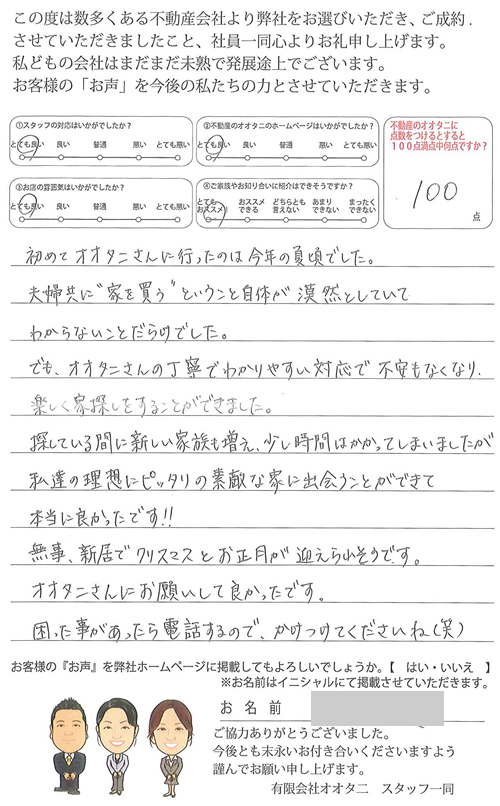 この度は数多くある不動産会社より弊社をお選びいただき、ご成約.
させていただきましたこと、社員一同心よりお礼申し上げます。
私どもの会社はまだまだ未熟で発展途上でございます。
お客様の「お声」を今後の私たちの力とさせていただきます。
①スタッフの対応はいかがでしたか？
とても良い 良い 普通 悪い とても悪い
②不動産のオオタニのホームページはいかがでしたか？
とても良い 良い 普通 悪い とても悪い
③お店の雰囲気はいかがでしたか？
とても良い 良い 普通 悪い とても悪い
④ご家族やお知り合いに紹介はできそうですか？
とてもおススメ！ おススメできる どちらとも言えない あまりできない まったくできない
不動産のオオタニに
点数をつけるとすると
１００点満点中何点ですか？
100
点
初めてオオタニさんに行ったのは今年の夏頃でした。
夫婦共に"家を買う"ということ自体が漠然としていて
わからないことだらけでした。
でも、オオタニさんの丁寧でわかりやすい対応で不安もなくなり、
楽しく家探しをすることができました。
探している間に新しい家族も増え、少し時間はかかってしまいましたが
私達の理想にピッタリの素敵な家に出会うことができて
本当に良かったです!!
無事、新居でクリスマスとお正月が迎えられそうです。
オオタニさんにお願いして良かったです。
困った事があったら電話するので、かけつけてくださいね(笑)
お客様の『お声』を弊社ホームページに掲載してもよろしいでしょうか。【　はい・いいえ　】
※お名前はイニシャルにて掲載させていただきます。
お 名 前
ご協力ありがとうございました。
今後とも末永いお付き合いくださいますよう
謹んでお願い申し上げます。
有限会社オオタニ　スタッフ一同